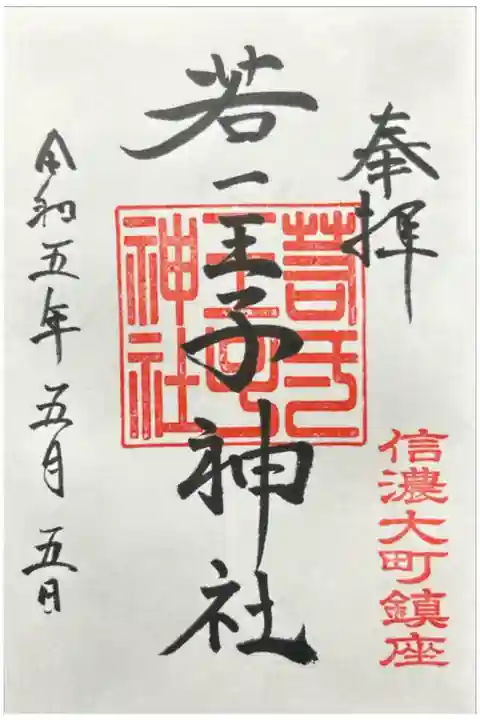 奉拝
信濃大町鎮座
若一王子神社
神社
令和五年五月五日